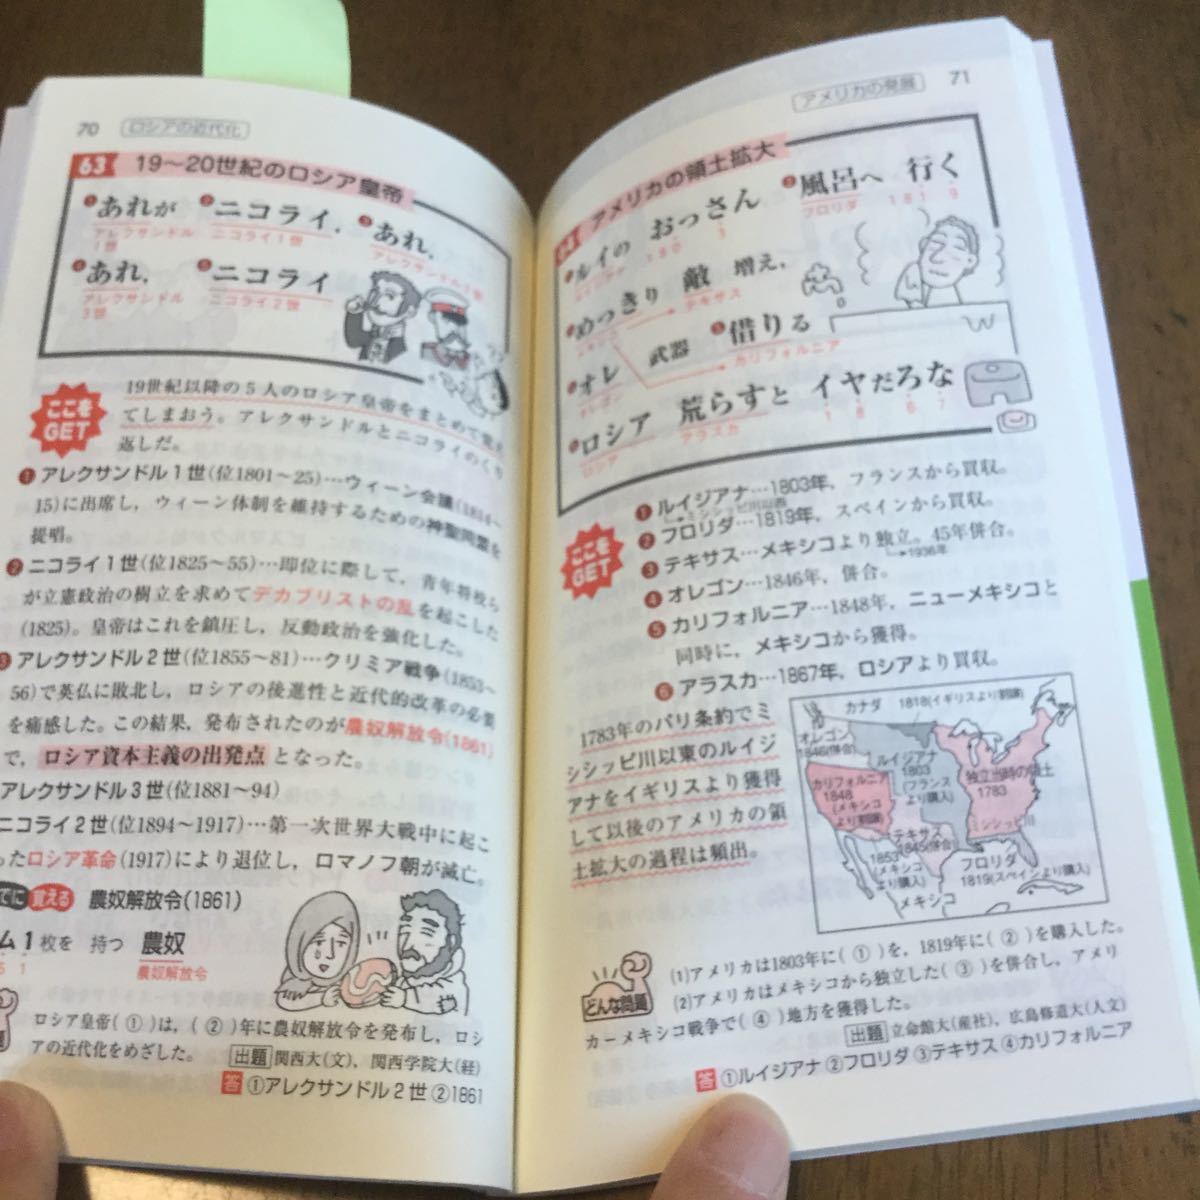 70 ロシアの近代化
63 19〜20世紀のロシア皇帝
❶あれが ❷ニコライ，❸あれ，
アレクサンドル1世 ニコライ1世 アレクサンドル2世
❹あれ， ❺ニコライ
アレクサンドル3世 ニコライ2世
ここをGET
19世紀以降の5人のロシア皇帝をまとめて覚え
てしまおう。アレクサンドルとニコライのくり
返しだ。
❶アレクサンドル1世(位1801〜25)…ウィーン会議(1814〜
15)に出席し，ウィーン体制を維持するための神聖同盟を
提唱。
❷ニコライ1世(位1825〜55)…即位に際して，青年将校ら
が立憲政治の樹立を求めてデカブリストの乱を起こした
(1825)。皇帝はこれを鎮圧し，反動政治を強化した。
❸アレクサンドル2世(位1855〜81)…クリミア戦争(1853〜
56)で英仏に敗北し，ロシアの後進性と近代的改革の必要
を痛感した。この結果，発布されたのが農奴解放令(1861)
で，ロシア資本主義の出発点となった。
アレクサンドル3世(位1881〜94)
ニコライ2世(位1894〜1917)…第一次世界大戦中に起こ
ったロシア革命(1917)により退位し，ロマノフ朝が滅亡。
でに覚える 農奴解放令(1861)
ム1枚を 持つ 農奴
6 1 農奴解放令
ロシア皇帝(①)は，(②)年に農奴解放令を発布し，ロシ
アの近代化をめざした。 出題 関西大(文)，関西学院大(経)
答 ①アレクサンドル2世 ②1861
アメリカの発展 71
64 アメリカの領土拡大
❶ルイの おっさん ❷風呂へ 行く
ルイジアナ 180 3 フロリダ 181 9
❸めっきり 敵 増え，
メキシコ テキサス
❹オレ 武器 ❺借りる
オレゴン カリフォルニア
❻ロシア 荒らすと イヤだろな
ロシア アラスカ 1 8 6 7
ここをGET
❶ルイジアナ…1803年，フランスから買収。
→ミシシッピ川以西
❷フロリダ…1819年，スペインから買収。
❸テキサス…メキシコより独立。45年併合。
→1936年
❹オレゴン…1846年，併合。
❺カリフォルニア…1848年，ニューメキシコと
同時に，メキシコから獲得。
❻アラスカ…1867年，ロシアより買収。
1783年のパリ条約でミ
シシッピ川以東のルイジ
アナをイギリスより獲得
して以後のアメリカの領
土拡大の過程は頻出。
カナダ
1818(イギリスより割譲)
オレゴン
1846(併合)
ルイジアナ
1803
(フランスより購入)
独立当時の領土
1783
カリフォルニア
1848
(メキシコより割譲)
ミシシッピ川
テキサス
1845(併合)
1853
(メキシコより購入)
フロリダ
1819(スペインより購入)
メキシコ
どんな問題
(1)アメリカは1803年に(①)を，1819年に(②)を購入した。
(2)アメリカはメキシコから独立した(③)を併合し，アメリ
カーメキシコ戦争で(④)地方を獲得した。
出題 立命館大(産社)，広島修道大(人文)
答 ①ルイジアナ ②フロリダ ③テキサス ④カリフォルニア